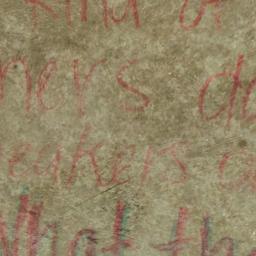 kind of
ners do
eakers
What th